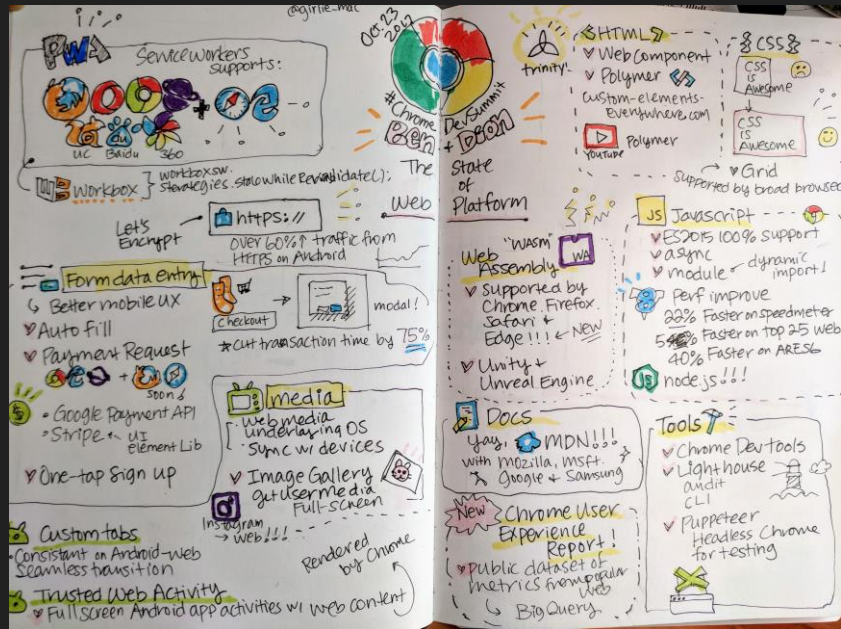 @girlie_mac
Oct 23
2017
PWA
Service Workers
supports:
+
UC Baidu 360
Workbox
workboxsw.
strategies.staleWhileRevalidate();
Let's
Encrypt
https://
over 60%↑ traffic from
HTTPS on Android
Form data entry
Better mobile UX
Auto fill
Payment Request
+
soon!
• Google Payment API
• Stripe UI
element Lib
One-tap Sign up
checkout
modal!
*cut transaction time by 75%
media
web media
underlaying OS
sync w/ devices
Image Gallery
getusermedia
Full-screen
Instagram
→ web!!!
Custom tabs
• Consistant on Android-web
Seamless transition
Rendered
by Chrome
Trusted Web Activity
Full screen Android app activities w/ web content
#Chrome
DevSummit
Ben + Dion
The
Web
State
of
Platform
trinity!
HTML
Web Component
Polymer
custom-elements-
everywhere.com
YouTube
Polymer
{{ CSS }}
CSS
is
Awesome
CSS
is
Awesome
Grid
Supported by broad browser
"WASM"
Web
Assembly
WA
Supported by
Chrome, Firefox,
Safari &
Edge!!! ← NEW
Unity +
Unreal Engine
JS
Javascript
ES2015 100% support
async
module dynamic
import!
Perf improve
22% Faster on speedmeter
Faster on top 25 web
40% Faster on ARES6
JS
node.js!!!
Docs
Yay, MDN!!!
with mozilla, msft.
Google & Samsung
New
Chrome User
Experience
Report!
public dataset of
metrics from popular
web
BigQuery
Tools
Chrome DevTools
Lighthouse
audit
CLI
Puppeteer
Headless Chrome
for testing